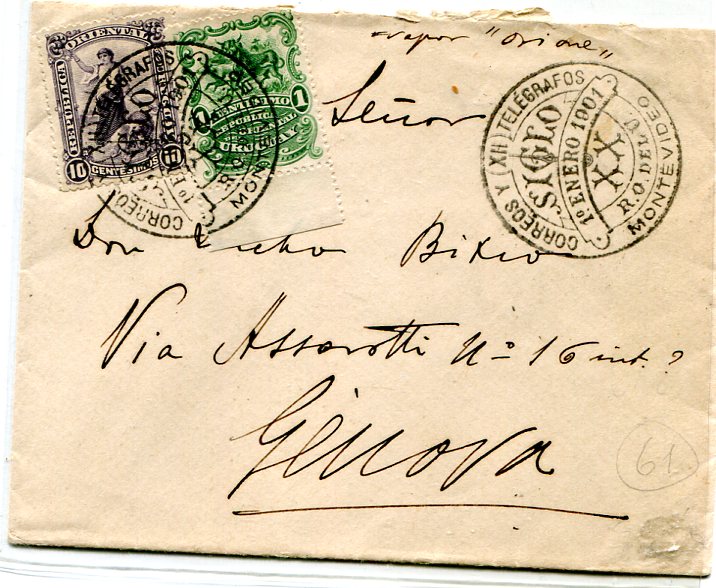 vapor "Orione"
REPUBLICA ORIENTAL
10 CENTESIMOS 10
1 CENTESIMO 1
REPUBLICA
ORIENTAL
URUGUAY
CORREOS Y (XII) TELEGRAFOS
SIGLO
1º ENERO 1901
XX
R.O. DEL U.
MONTEVIDEO
Señor
Don Bixio
Via Assarotti Nº 16 int.
Genova
61